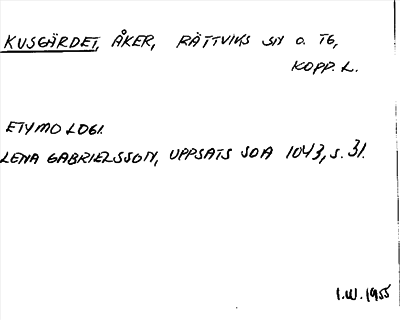 KUSGÄRDET, ÅKER, RÄTTVIKS SN O. TG,
KOPP. L.
ETYMOLOGI.
LENA GABRIELSSON, UPPSATS SOA 1043, S. 31.
I.W. 1955